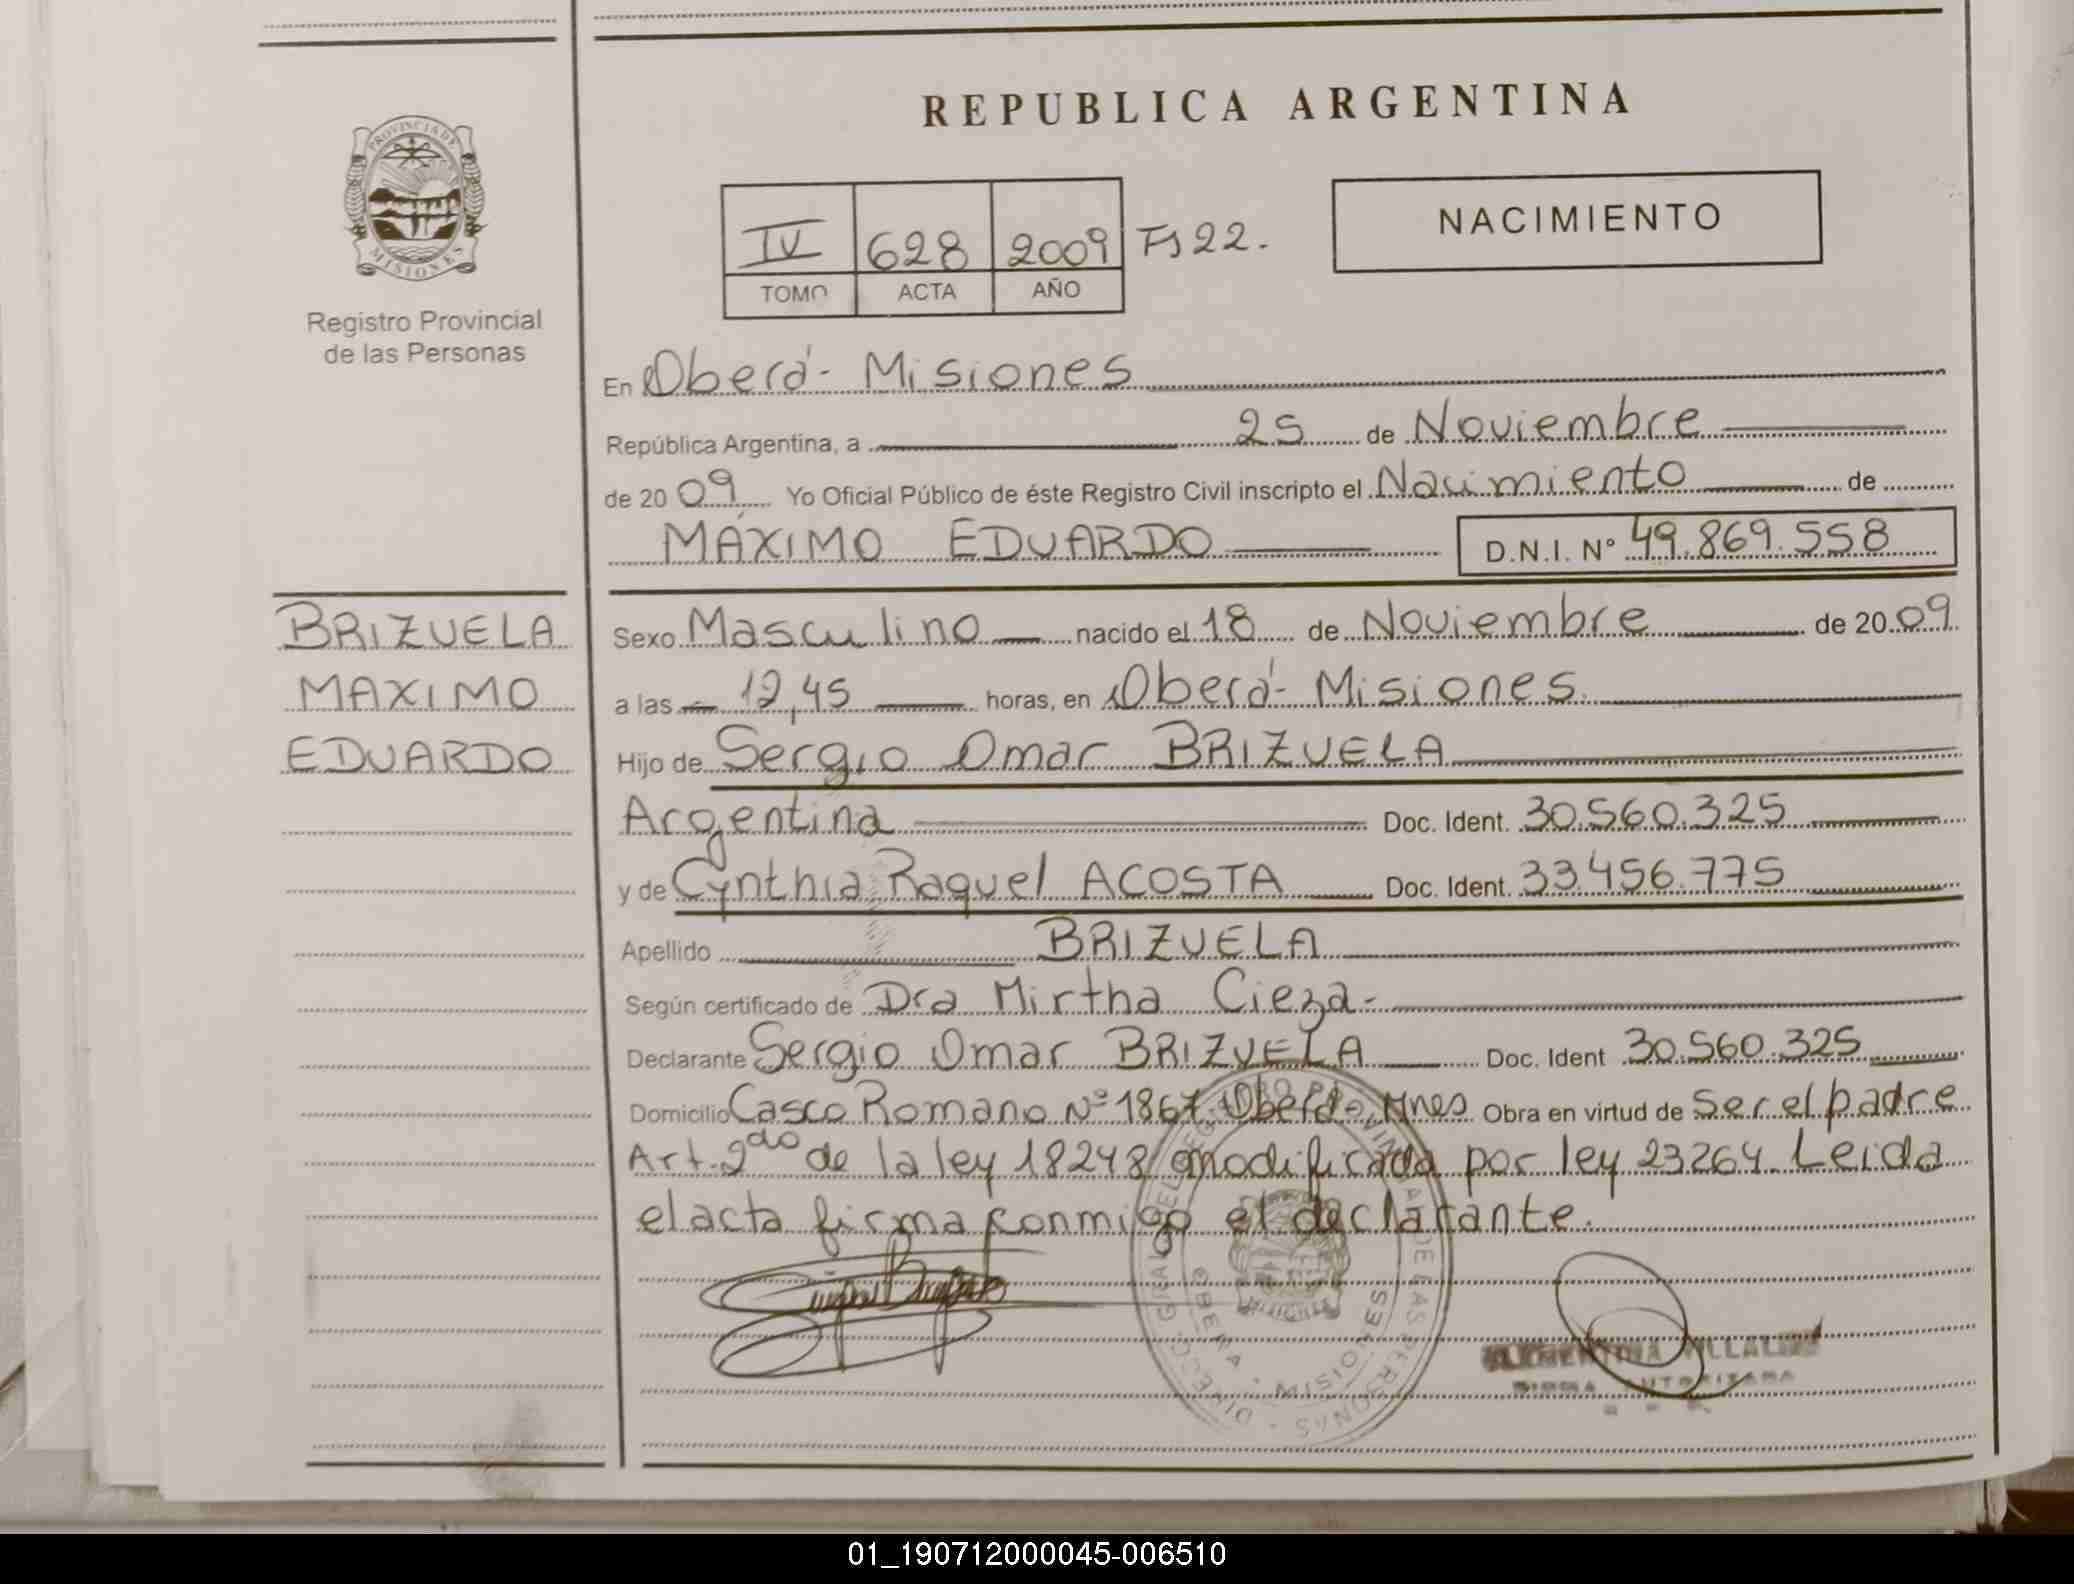 REPUBLICA ARGENTINA
PROVINCIA DE
MISIONES
Registro Provincial
de las Personas
IV 628 2009 Fs 22.
TOMO ACTA AÑO
NACIMIENTO
En Oberá - Misiones
República Argentina, a 25 de Noviembre
de 2009 Yo Oficial Público de éste Registro Civil inscripto el Nacimiento de
MÁXIMO EDUARDO D.N.I. N° 49.869.558
BRIZUELA
MAXIMO
EDUARDO
Sexo Masculino nacido el 18 de Noviembre de 2009
a las 12,45 horas, en Oberá - Misiones.
Hijo de Sergio Omar BRIZUELA
Argentina Doc. Ident. 30.560.325
y de Cynthia Raquel ACOSTA Doc. Ident. 33.456.775
Apellido BRIZUELA
Según certificado de Dra Mirtha Cieza.-
Declarante Sergio Omar BRIZUELA Doc. Ident 30.560.325
Domicilio Casco Romano Nº 1867 Oberá - Mnes Obra en virtud de Ser el padre
Art. 2do de la ley 18248 modificada por ley 23264. Leida
el acta firma conmigo el declarante.
DIRECC. GRAL DEL REGISTRO PROVINCIAL DE LAS PERSONAS
OBERA - MISIONES
01_190712000045-006510